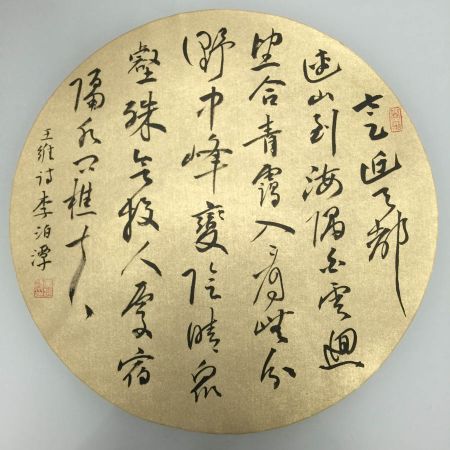 太乙近天都
连山到海隅白雲迴
望合青靄入看無分
野中峰變陰晴眾
壑殊欲投人處宿
隔水问樵夫
王維詩李泊潭